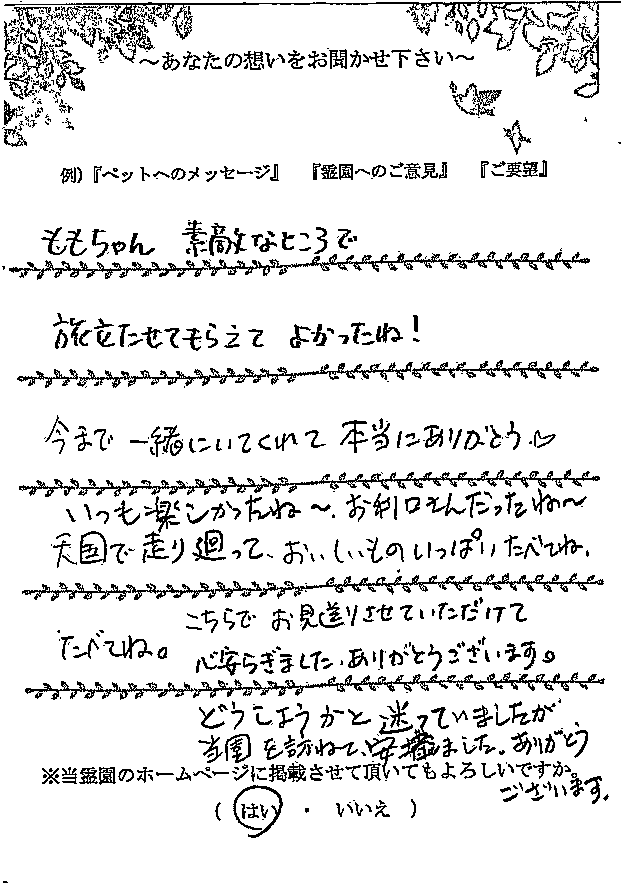 ～あなたの想いをお聞かせ下さい～
例)『ペットへのメッセージ』 『霊園へのご意見』 『ご要望』
ももちゃん 素敵なところで
旅立たせてもらえて よかったね!
今まで 一緒にいてくれて 本当にありがとう♡
いつも楽しかったね～、お利口さんだったね～
天国で走り廻って、おいしいものいっぱいたべてね、
たべてね。
こちらで お見送りさせていただけて
心安らぎました、ありがとうございます。
どうしようかと 迷っていましたが
当園を訪ねて、安堵しました。ありがとう
ございます。
※当霊園のホームページに掲載させて頂いてもよろしいですか。
( はい ・ いいえ )